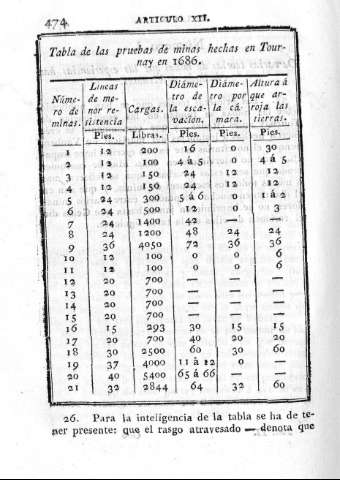 474 ARTICULO XII.
Tabla de las pruebas de minas hechas en Tour-
nay en 1686.
Núme-
ro de
minas.
Lineas
de me-
nor re-
sistencia
Cargas.
Diáme-
tro de
la esca-
vacion.
Diáme-
tro por
la cá-
mara.
Altura á
que ar-
roja las
tierras.
Pies. Libras. Pies. Pies. Pies.
1 12 200 16 0 30
2 12 100 4 á 5 0 4 á 5
3 12 150 24 12 12
4 12 150 24 12 12
5 24 300 5 á 6 1 á 2
6 24 500 12 0 3
7 24 1400 42 — —
8 24 1200 48 24 24
9 36 4050 72 36 36
10 12 100 0 0 6
11 12 100 0 0 6
12 20 700 — — —
13 20 700 — — —
14 20 700 — — —
15 20 700 — — —
16 15 293 30 15 15
17 20 700 40 20 20
18 30 2500 60 30 60
19 37 4000 11 á 12 0 —
20 40 5400 65 á 66 — —
21 32 2844 64 32 60
26. Para la inteligencia de la tabla se ha de te-
ner presente: que el rasgo atravesado — denota que